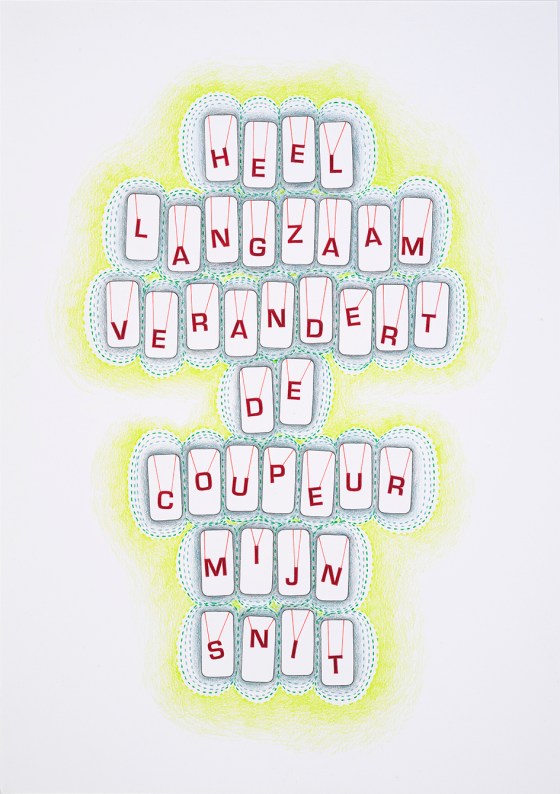 HEEL
LANGZAAM
VERANDERT
DE
COUPEUR
MIJN
SNIT